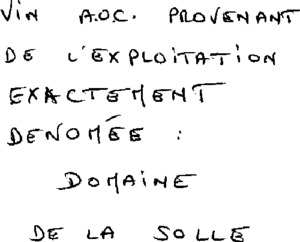 VIN A.O.C. PROVENANT
DE L'EXPLOITATION
EXACTEMENT
DENOMÉE :
DOMAINE
DE LA SOLLE